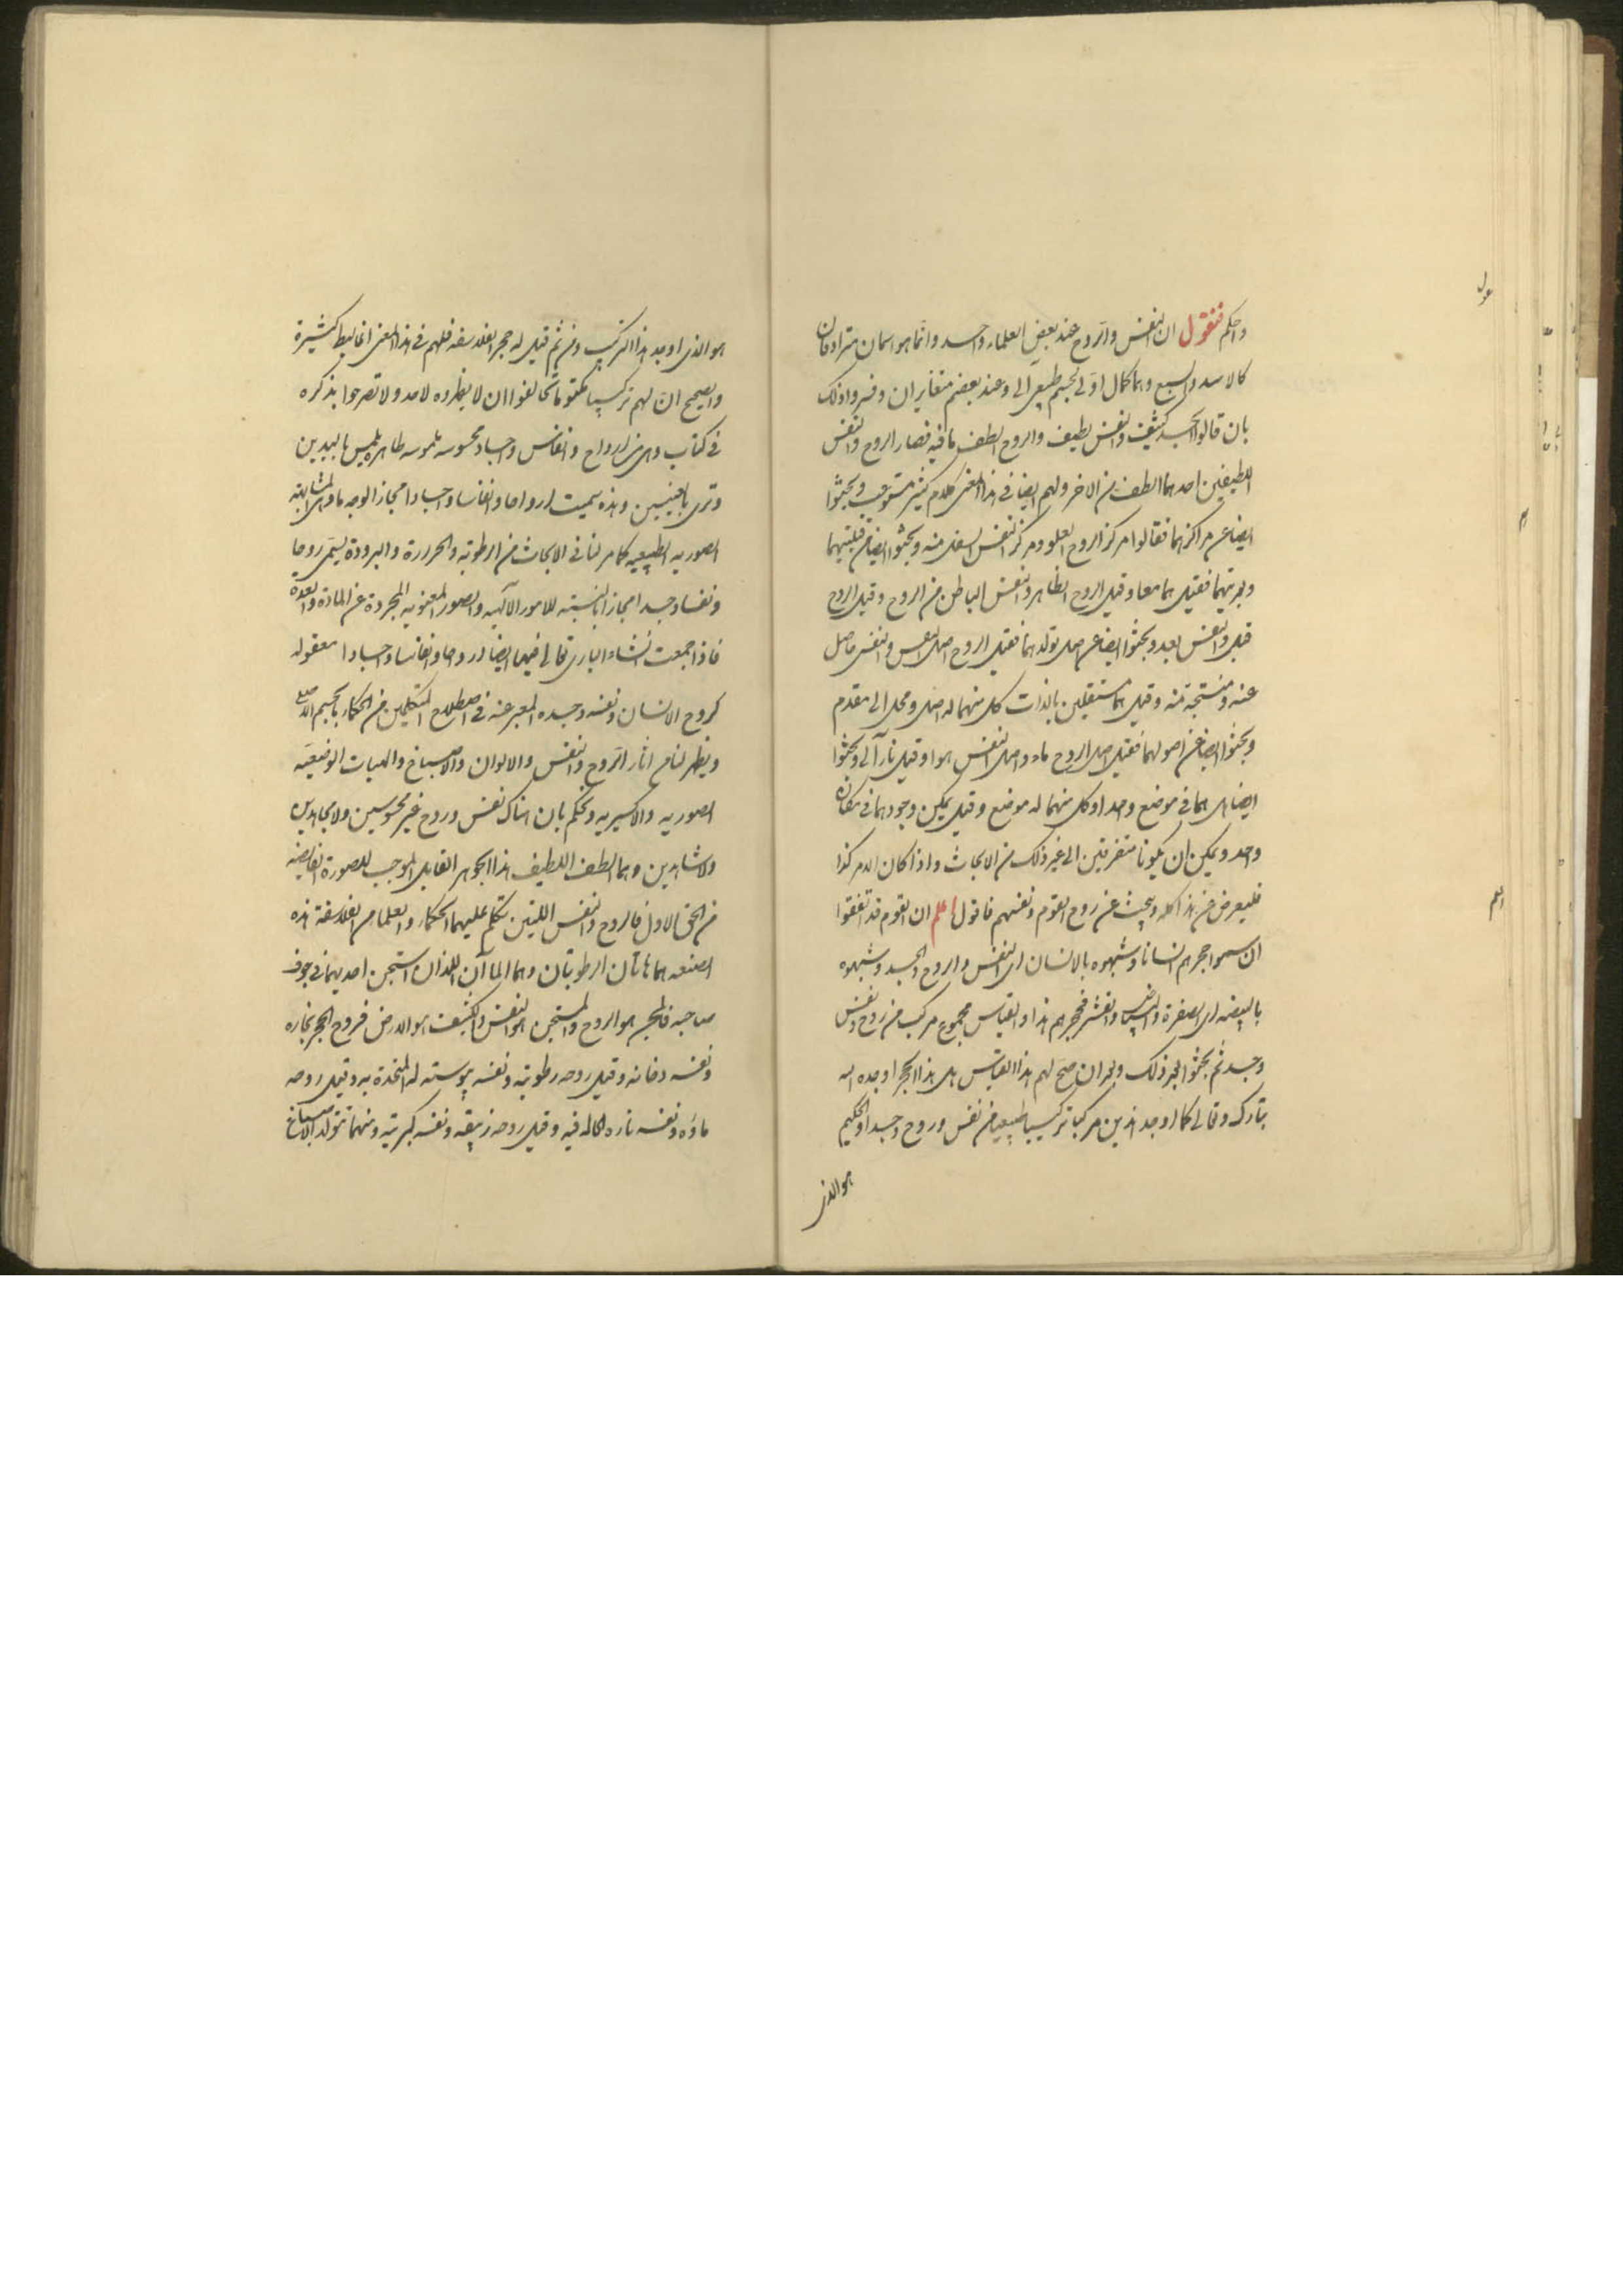 واحكم فنقول ان النفس والروح عند بعض العلماء واحد وانما هو اسمان مترادفان
كالاسد والسبع وهما كمال اول لجسم طبيعي الى وعند بعضهم متغايران وفسروا ذلك
بان قالوا الجسد كثيف والنفس لطيف والروح الطف مافيه فصار الروح والنفس
اللطيفين احدهما الطف من الاخر ولهم ايضا في هذا المعنى كلام كثير وبحثوا
ايضا عن مراكزهما فقالوا مركز الروح العلو ومركز النفس اسفل منه وبحثوا ايضا من قبليتهما
وبعديتهما فقيل هما معا وقيل الروح الظاهر والنفس الباطن من الروح وقيل الروح
قبل والنفس بعد وبحثوا ايضا عن اصل تولدهما فقيل الروح اصل النفس والنفس حاصل
عنه ومنتجة منه وقيل هما مستقلين بالذات كل منهما له اصل ومحل الى مقدم
وبحثوا ايضا عن اصولهما فقيل اصل الروح ماء واصل النفس هواء وقيل نار الى وبحثوا
ايضا هل هما في موضع واحد او كل منهما له موضع وقيل يمكن وجودهما في مكان
واحد ويمكن ان يكونا متفرقين الى غير ذلك من الابحاث واذا كان الامر كذا
فليعرض عن هذا كله ويبحث عن روح القوم ونفسهم فاقول اعلم ان القوم قد اتفقوا
ان سموا حجرهم انسانا وشبهوه بالانسان اى النفس والروح والجسد وشبهوه
بالبيضه اى الصفرة والبياض والقشر فحجرهم هذا والقياس مجموع مركب من روح ونفس
وجسد ثم بحثوا بعد ذلك وبعد ان صح لهم هذا القياس هل هذا الحجر اوجده الله
تبارك وتعالى كما اوجد هذين مركبا تركيبا طبيعيا من نفس وروح وجسد او الحكيم
هو الذى
هو الذى اوجد هذا التركيب ومن ثم قيل له حجر الفلاسفه فلهم في هذا المعنى اغاليط كثيرة
والصحيح ان لهم تركيبا مكتوما تحالفوا ان لا يظهروه لاحد ولا تصرحوا بذكره
في كتاب وهى من ارواح وانفاس واجساد محسوسه ملموسه ظاهره تلمس باليدين
وترى بالعينين وهذه سميت ارواحا وانفاسا واجسادا مجازا لوجه ما وهى المشابهة
الصوريه الطبيعيه كما مر لنا في الابحاث من الرطوبة والحرارة والبرودة يسمى روحا
ونفسا وجسدا مجازا بالنسبته للامور الالهيه والصور المعنويه المجردة عن المادة والمدة
فاذا جمعت انشاء البارى تعالى فيها ايضا ارواحا وانفاسا واجسادا معقوله
كروح الانسان ونفسه وجسده المعبر عنه في اصطلاح المتكلمين من الحكماء بالجسم
ويظهر لنا من اثار الروح والنفس والالوان والاصباغ والهيات الوضعيه
الصوريه والاكسيريه ونحكم بان هناك نفس وروح غير محسوسين ولا مجاهدين
ولا مشاهدين وهما الطف اللطيف هذا الجوهر القابل الموجب للصورة الفايضه
من الحق الاول فالروح والنفس اللتين تكلم عليهما الحكماء والعلماء من الفلاسفة هذه
الصنعه هما هاتان الرطوبتان وهما الماآن اللذان استجن احديهما في جوف
صاحبه فالجن هو الروح والمستجن هو النفس والكثيف هو الارض فروح الحجر بخاره
ونفسه دخانه وقيل روحه رطوبته ونفسه يبوسته المتحدة به وقيل روحه
ماؤه ونفسه ناره الحاله فيه وقيل روحه زيبقه ونفسه كبريته ومنهما تتولد الاصباغ